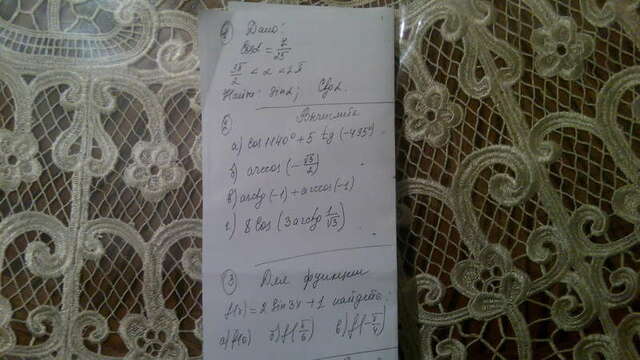 ① Дано:
cos α = 7/25
3π/2 < α < 2π
Найти: sin α; ctg α.
② Вычислите
а) cos 1140° + 5 tg (-495°)
б) arccos (-√3/2)
в) arctg (-1) + arccos (-1)
г) 8 cos (3 arcctg 1/√3)
③ Для функции
f(x) = 2 sin 3x + 1 найдите:
а) f(0) б) f(π/6) в) f(-π/4)